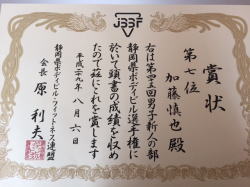 JBBF
賞状
第七位
加藤慎也殿
右は第四五回男子新人の部
静岡県ボディビル選手権に
於いて頭書の成績を収め
たので茲にこれを賞します
平成二十九年八月六日
静岡県ボディビル・フィットネス連盟
会長 原利夫